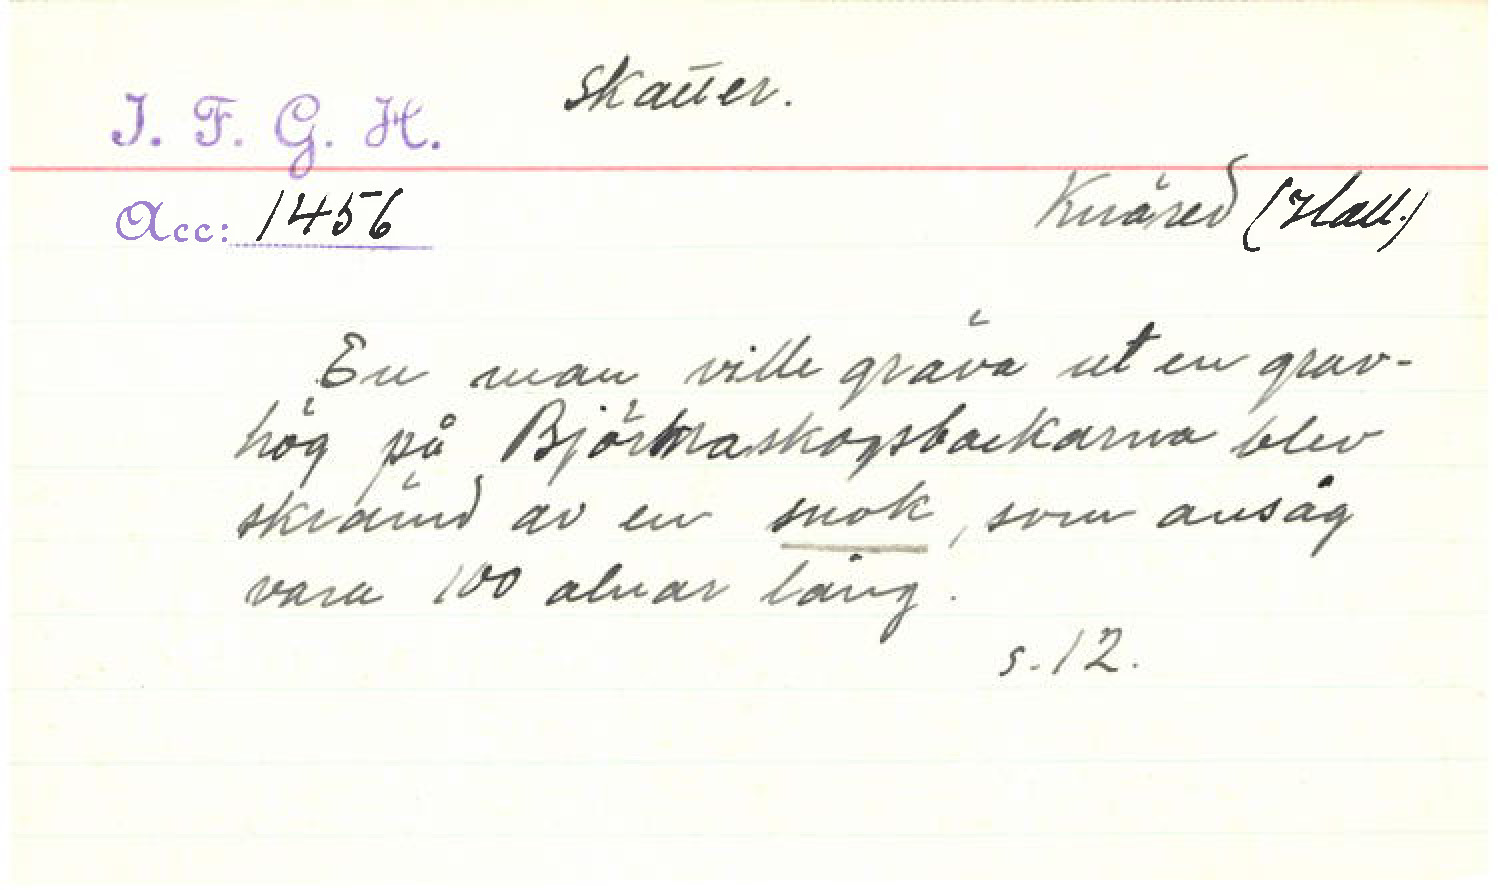 Skatter.
I. F. G. H.
Knäred (Hall.)
Acc: 1456
En man ville gräva ut en grav-
hög på Björkraskogsbackarna blev
skrämd av en snok, som ansåg
vara 100 alnar lång.
s. 12.